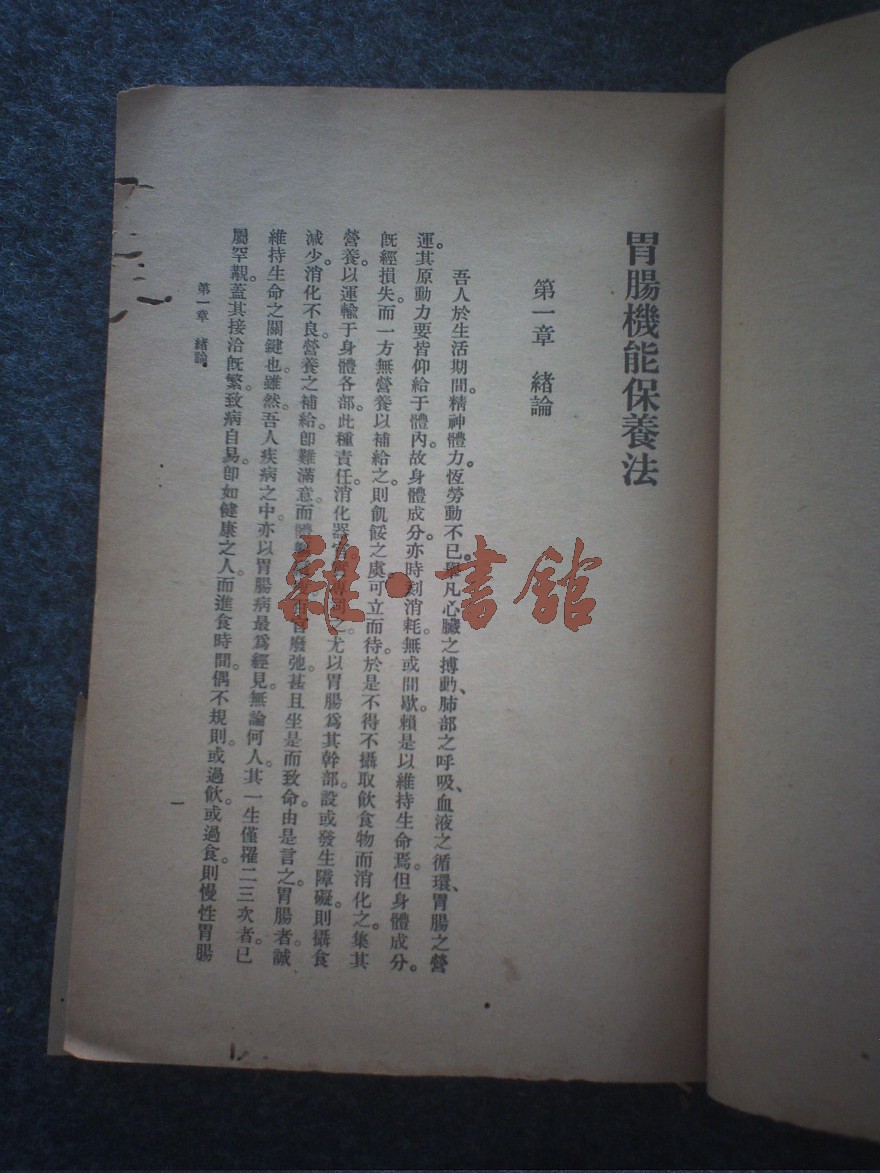 胃腸機能保養法
第一章　緒論
吾人於生活期間。精神體力。恆勞動不已。舉凡心臟之搏動、肺部之呼吸、血液之循環、胃腸之營
運。其原動力要皆仰給于體內。故身體成分。亦時刻消耗。無或間歇。賴是以維持生命焉。但身體成分。
旣經損失。而一方無營養以補給之。則飢餒之虞。可立而待。於是不得不攝取飲食物而消化之。集其
營養。以運輸于身體各部。此種責任。消化器官之。尤以胃腸爲其幹部。設或發生障礙。則攝食
減少。消化不良。營養之補給。卽難滿意。而體廢弛。甚且坐是而致命。由是言之。胃腸者。誠
維持生命之關鍵也。雖然。吾人疾病之中。亦以胃腸病最爲經見。無論何人。其一生僅罹二三次者。已
屬罕覯。蓋其接洽旣繁。致病自易。卽如健康之人。而進食時間。偶不規則。或過飲。或過食。則慢性胃腸
第一章　緒論
一
雜·書館